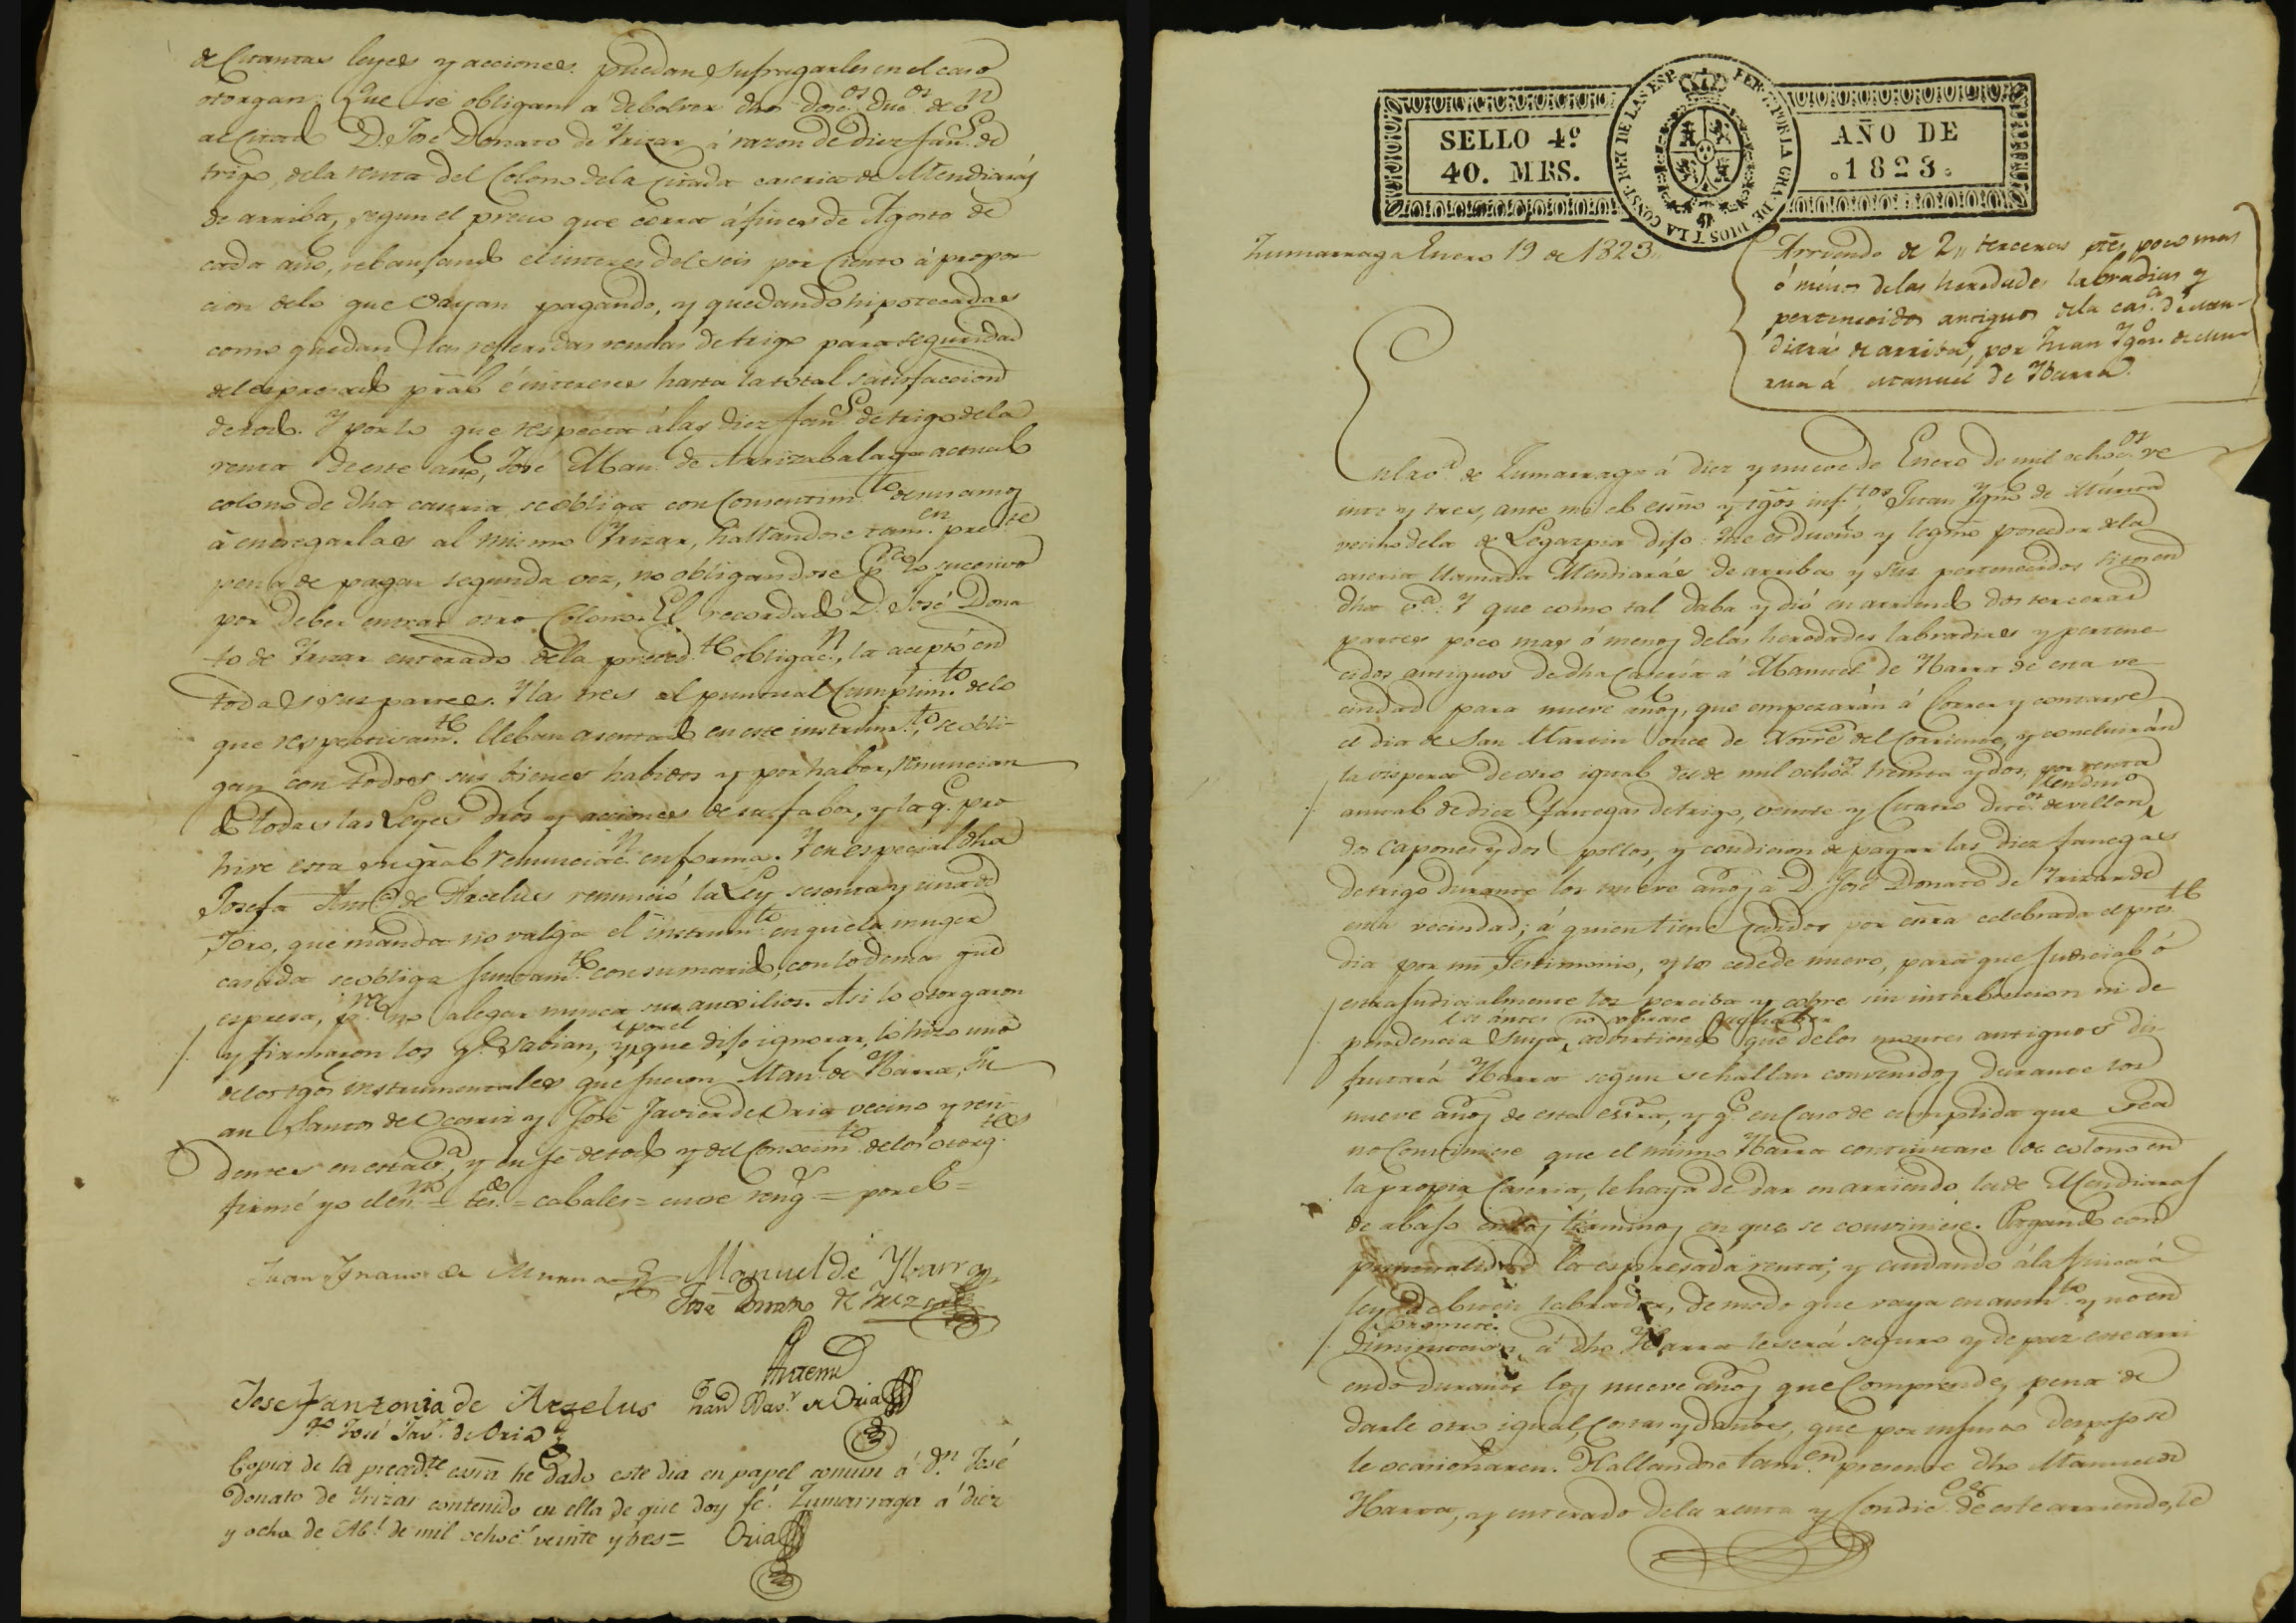 de Cuantas leyes y acciones puedan sufragarles en el caso
otorgan: Que se obligan á debolver dhos dosc.os duc.os de v.n
al citado D. José Donato de Yrizar á razon de diez fan.s de
trigo, de la renta del Colono de la citada caseria de Mendiarás
de arriba, segun el precio que corra á fines de Agosto de
cada año, rebansando el interes del seis por ciento á propor
cion de lo que vayan pagando, y quedando hipotecadas
como quedan las referidas rentas de trigo para seguridad
del espresado prãl é intereses hasta la total satisfaccion
de todo. Y por lo que respecta á las diez fan.s de trigo de la
renta de este año, José Man.l de Arrizabalaga actual
colono de dha caseria se obliga con consentim.to de sus amos
á entregarlas al mismo Yrizar, hallandose tam.en pres.te
pena de pagar segunda vez, no obligandose p.a lo sucesivo
por deber entrar otro Colono. El recordado D. José Dona
to de Yrizar enterado de la preced.te obligac.n, la aceptó en
todas sus partes. Y los tres al puntual Cumplim.to de lo
que respectivam.te lleban asentado en este instrum.to, se obli-
gan con todos sus bienes habidos y por haber, renuncian
todas las Leyes dr̃os y acciones de su fabor, y la q.e pro
hive esta gr̃al renunciac.n en forma. Y en especial dha
Josefa Ant.a de Arcelus renunció la Ley sesenta y una de
Toro, que manda no valga el instrum.to en que la muger
casada se obliga juntam.te con su marido, con lo demas que
espresa, p.a no alegar nunca sus auxilios. Asi lo otorgaron
y firmaron los q.e sabian, y por el que dijo ignorar, lo hizo uno
de los tgõs instrumentales que fueron Man.l de Ybarra, Ju
an Santos de Ocariz y José Javier de Oria vecino y resi-
dentes en esta v.a, y en fé de todo y del Conocim.to de los otorg.tes
firmé yo el es.no = tes.do = cabales = entre reng.s = por el =
Juan Ygnacio de Murua Manuel de Ybarra
José Donato de Yrizar
Antemi
Josefa Antonia de Arzelus Fran.co Xav.r de Oria
T.o José Jav.r de Oria
Copia de la preced.te esc̃ra he dado este dia en papel comun á D.n José
Donato de Yrizar contenido en ella de que doy fé. Zumarraga á diez
y ocho de Ab.l de mil ochoc.s veinte y tres = Oria
SELLO 4.º
40. MRS.
FER. 7. POR LA GRA. DE DIOS Y LA CONST. REY DE LAS ESP.
AÑO DE
.1823.
Zumarraga Enero 19 de 1823
Arriendo de 2,, terceras ptẽs, poco mas
ó menos de las heredades labradias y
pertenecidos antiguos de la cas.a de Men-
diarás de arriba, por Juan Ygn.o de Mu-
rua á Manuel de Ybarra.
En la v.a de Zumarraga á diez y nueve de Enero de mil ochoc.os ve
inte y tres, ante mi el esñno y tgõs inf.tos, Juan Ygn.o de Murua
vecino de la de Legazpia dijo: Que es dueño y legmõ poseedor de la
caseria llamada Mendiarás de arriba y sus pertenecidos sitos en
dha v.a: Y que como tal daba y dió en arriendo dos terceras
partes poco mas ó menos de las heredades labradias y pertene-
cidos antiguos de dha Caseria á Manuel de Ybarra de esta ve
cindad para nueve años, que empezarán á Correr y contarse
el dia de San Martin once de Novrẽ del Corriente, y concluirán
la vispera de otro igual dia de mil ochoc.os treinta y dos, por renta
anual de diez fanegas de trigo, veinte y cuatro duc.os de vellon,
dos capones y dos pollos, y condicion de pagar las diez fanegas
de trigo durante los nueve años á D. José Donato de Yrizar de
esta vecindad; á quien tiene cedidos por esc̃ra celebrada el pres.te
dia por mi Testimonio, y los cede de nuevo, para que judicial ó
extrajudicialmente los perciba y cobre sin interbencion ni de
pendencia suya, advirtiendo que de los montes antiguos dis
frutará Ybarra segun se hallan convenidos durante los
nueve años de esta esc̃ra, y q.e en Caso de cumplida que sea
no Conviniese que el mismo Ybarra continuase de colono en
la propia Caseria, le haya de dar en arriendo la de Mendiaras
de abajo en los términos en que se conviniese. Pagando con
puntualidad la espresada renta; y cuidando á la finca á
ley de buen labrador, de modo que vaya en aum.to y no en
promete.
diminucion, á dho Ybarra le será seguro y de paz este arri
endo durante los nueve años que Comprende, pena de
darle otro igual, Costas y daños, que por injusto despojo se
le ocasionaren. Hallandose tam.en presente dho Manuel de
Ybarra, y enterado de la renta y Condic.es de este arriendo, le